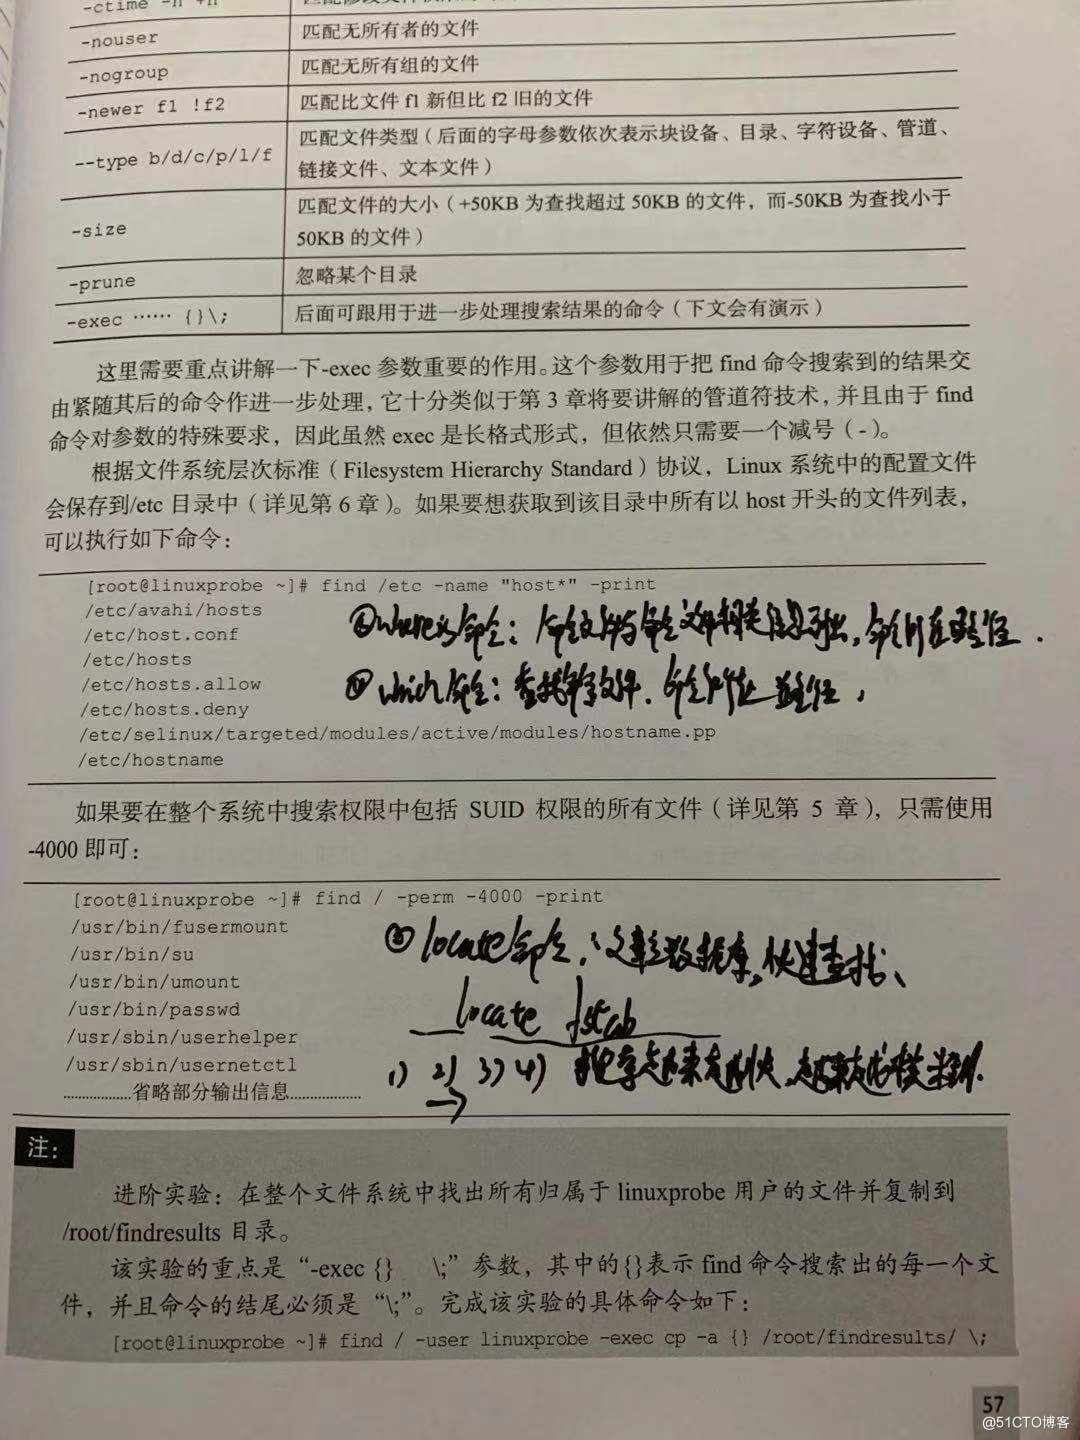 -ctime -n +n
-nouser 匹配无所有者的文件
-nogroup 匹配无所有组的文件
-newer f1 !f2 匹配比文件 f1 新但比 f2 旧的文件
--type b/d/c/p/l/f 匹配文件类型（后面的字母参数依次表示块设备、目录、字符设备、管道、
链接文件、文本文件）
-size 匹配文件的大小（+50KB 为查找超过 50KB 的文件，而-50KB 为查找小于
50KB 的文件）
-prune 忽略某个目录
-exec …… {}\; 后面可跟用于进一步处理搜索结果的命令（下文会有演示）
这里需要重点讲解一下-exec 参数重要的作用。这个参数用于把 find 命令搜索到的结果交
由紧随其后的命令作进一步处理，它十分类似于第 3 章将要讲解的管道符技术，并且由于 find
命令对参数的特殊要求，因此虽然 exec 是长格式形式，但依然只需要一个减号（-）。
根据文件系统层次标准（Filesystem Hierarchy Standard）协议，Linux 系统中的配置文件
会保存到/etc 目录中（详见第 6 章）。如果要想获取到该目录中所有以 host 开头的文件列表，
可以执行如下命令：
[root@linuxprobe ~]# find /etc -name "host*" -print
/etc/avahi/hosts
/etc/host.conf
/etc/hosts
/etc/hosts.allow
/etc/hosts.deny
/etc/selinux/targeted/modules/active/modules/hostname.pp
/etc/hostname
whereis命令：命令文件与命令文件相关信息列出，命令所在路径.
which命令：查找命令文件，命令所在路径,
如果要在整个系统中搜索权限中包括 SUID 权限的所有文件（详见第 5 章），只需使用
-4000 即可：
[root@linuxprobe ~]# find / -perm -4000 -print
/usr/bin/fusermount
/usr/bin/su
/usr/bin/umount
/usr/bin/passwd
/usr/sbin/userhelper
/usr/sbin/usernetctl
………………省略部分输出信息………………
③ locate命令：数据库，快速查找、
locate fstab
1) 2) 3) 4)
注：
进阶实验：在整个文件系统中找出所有归属于 linuxprobe 用户的文件并复制到
/root/findresults 目录。
该实验的重点是“-exec {} \;”参数，其中的{}表示 find 命令搜索出的每一个文
件，并且命令的结尾必须是“\;”。完成该实验的具体命令如下：
[root@linuxprobe ~]# find / -user linuxprobe -exec cp -a {} /root/findresults/ \;
57
@51CTO博客